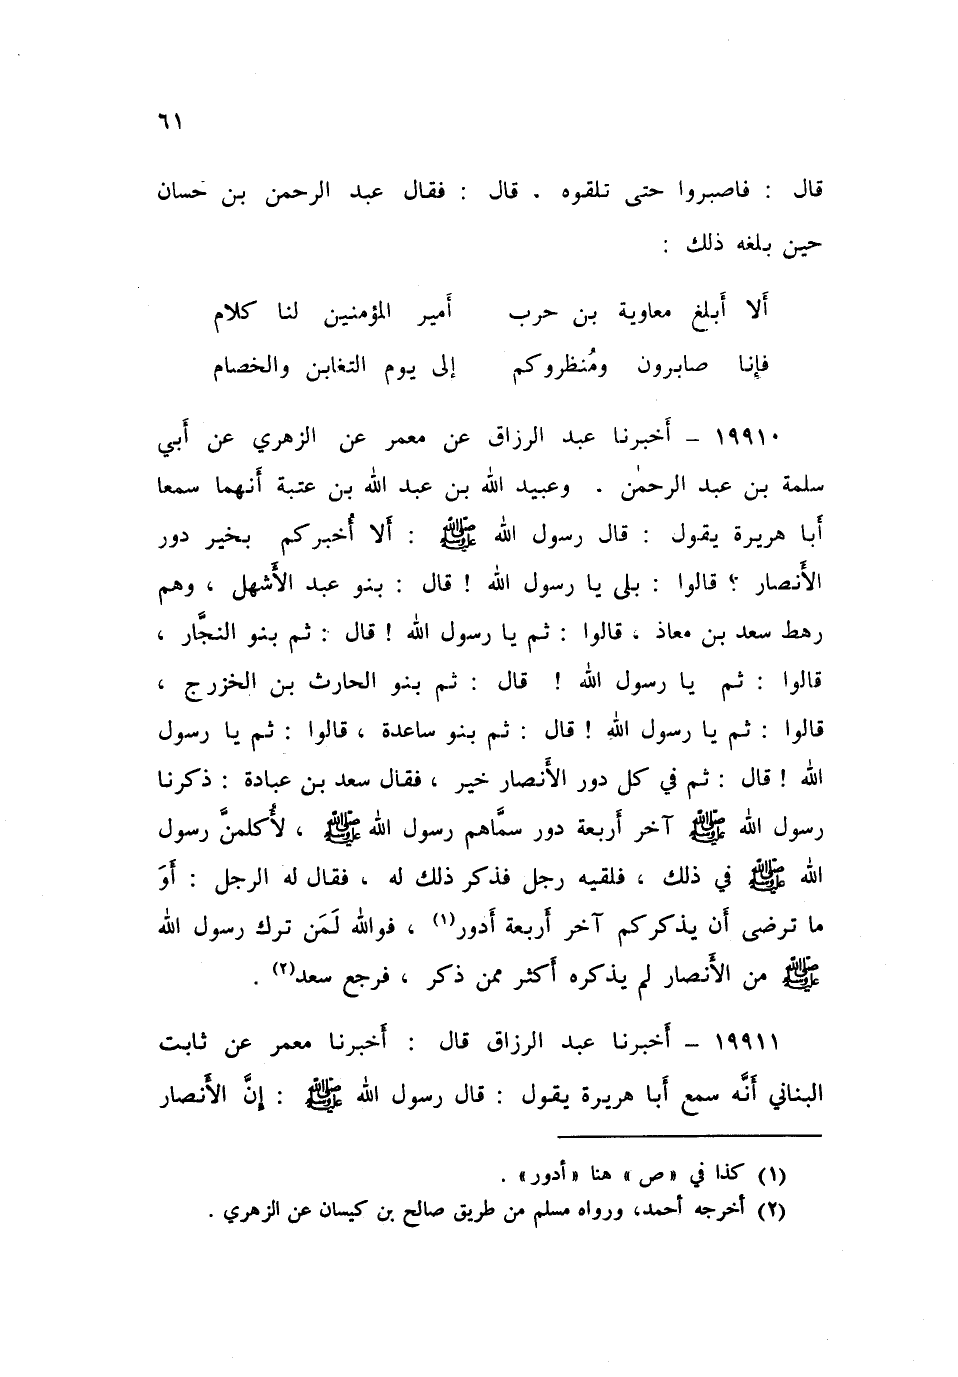 ٦١
قال : فاصبروا حتى تلقوه . قال : فقال عبد الرحمن بن حسان
حين بلغه ذلك :
أَلا أَبلغ معاوية بن حرب أَمير المؤمنين لنا كلام
فإِنا صابرون ومُنظروكم إلى يوم التغابن والخصام
١٩٩١٠ – أَخبرنا عبد الرزاق عن معمر عن الزهري عن أَبي
سلمة بن عبد الرحمٰن . وعبيد الله بن عبد الله بن عتبة أَنهما سمعا
أَبا هريرة يقول : قال رسول الله ﷺ : أَلا أُخبركم بخير دور
الأَنصار ؟ قالوا : بلى يا رسول الله ! قال : بنو عبد الأَشهل ، وهم
رهط سعد بن معاذ ، قالوا : ثم يا رسول الله ! قال : ثم بنو النجَّار ،
قالوا : ثم يا رسول الله ! قال : ثم بنو الحارث بن الخزرج ،
قالوا : ثم يا رسول الله ! قال : ثم بنو ساعدة ، قالوا : ثم يا رسول
الله ! قال : ثم في كل دور الأَنصار خير ، فقال سعد بن عبادة : ذكرنا
رسول الله ﷺ آخر أَربعة دور سمَّاهم رسول الله ﷺ ، لأُكلمنَّ رسول
الله ﷺ في ذلك ، فلقيه رجل فذكر ذلك له ، فقال له الرجل : أَوَ
ما ترضى أَن يذكركم آخر أَربعة أَدور(١) ، فوالله لَمَن ترك رسول الله
ﷺ من الأَنصار لم يذكره أَكثر ممن ذكر ، فرجع سعد(٢) .
١٩٩١١ – أَخبرنا عبد الرزاق قال : أَخبرنا معمر عن ثابت
البناني أَنَّه سمع أَبا هريرة يقول : قال رسول الله ﷺ : إِنَّ الأَنصار
(١) كذا في «ص» هنا «أدور» .
(٢) أخرجه أحمد، ورواه مسلم من طريق صالح بن كيسان عن الزهري .